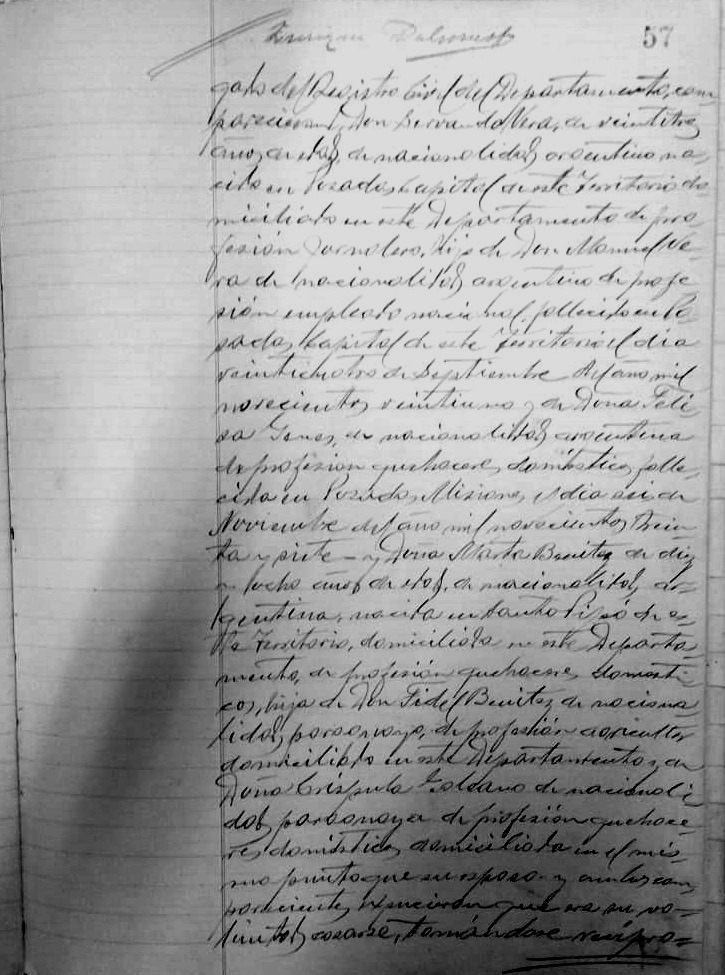 57
gado del Registro Civil del Departamento, com-
parecieron, Don Servando Vera, de veintitres
años de edad, de nacionalidad argentino na-
cido en Posadas Capital de este Territorio do-
miciliado en este Departamento de pro-
fesión Jornalero, hijo de Don Manuel Ve-
ra de nacionalidad argentino de profe
sión empleado nacional, fallecido en Po-
sadas Capital de este Territorio el dia
veinticuatro de Septiembre del año mil
novecientos veintiuno y de Doña Feli
sa de nacionalidad argentina
de profesion quehaceres domésticos, falle-
cida en Posadas, Misiones, el dia seis de
Noviembre del año mil novecientos trein-
ta y siete - y Doña Marta Benitez de diez
y ocho años de edad, de nacionalidad ar-
gentina, nacida en Santo Pipó de es-
te Territorio, domiciliada en este Departa-
mento, de profesión quehaceres domésti-
cos, hija de Don Fidel Benitez de naciona-
lidad paraguayo, de profesión agricultor
domiciliado en este Departamento y de
Doña Críspula de nacionali-
dad paraguaya de profesión quehace-
res domésticos, domiciliada en el mis-
mo punto que su esposo - y ambos com
parecientes, que era su vo-
luntad casarse, tomándose recípro-